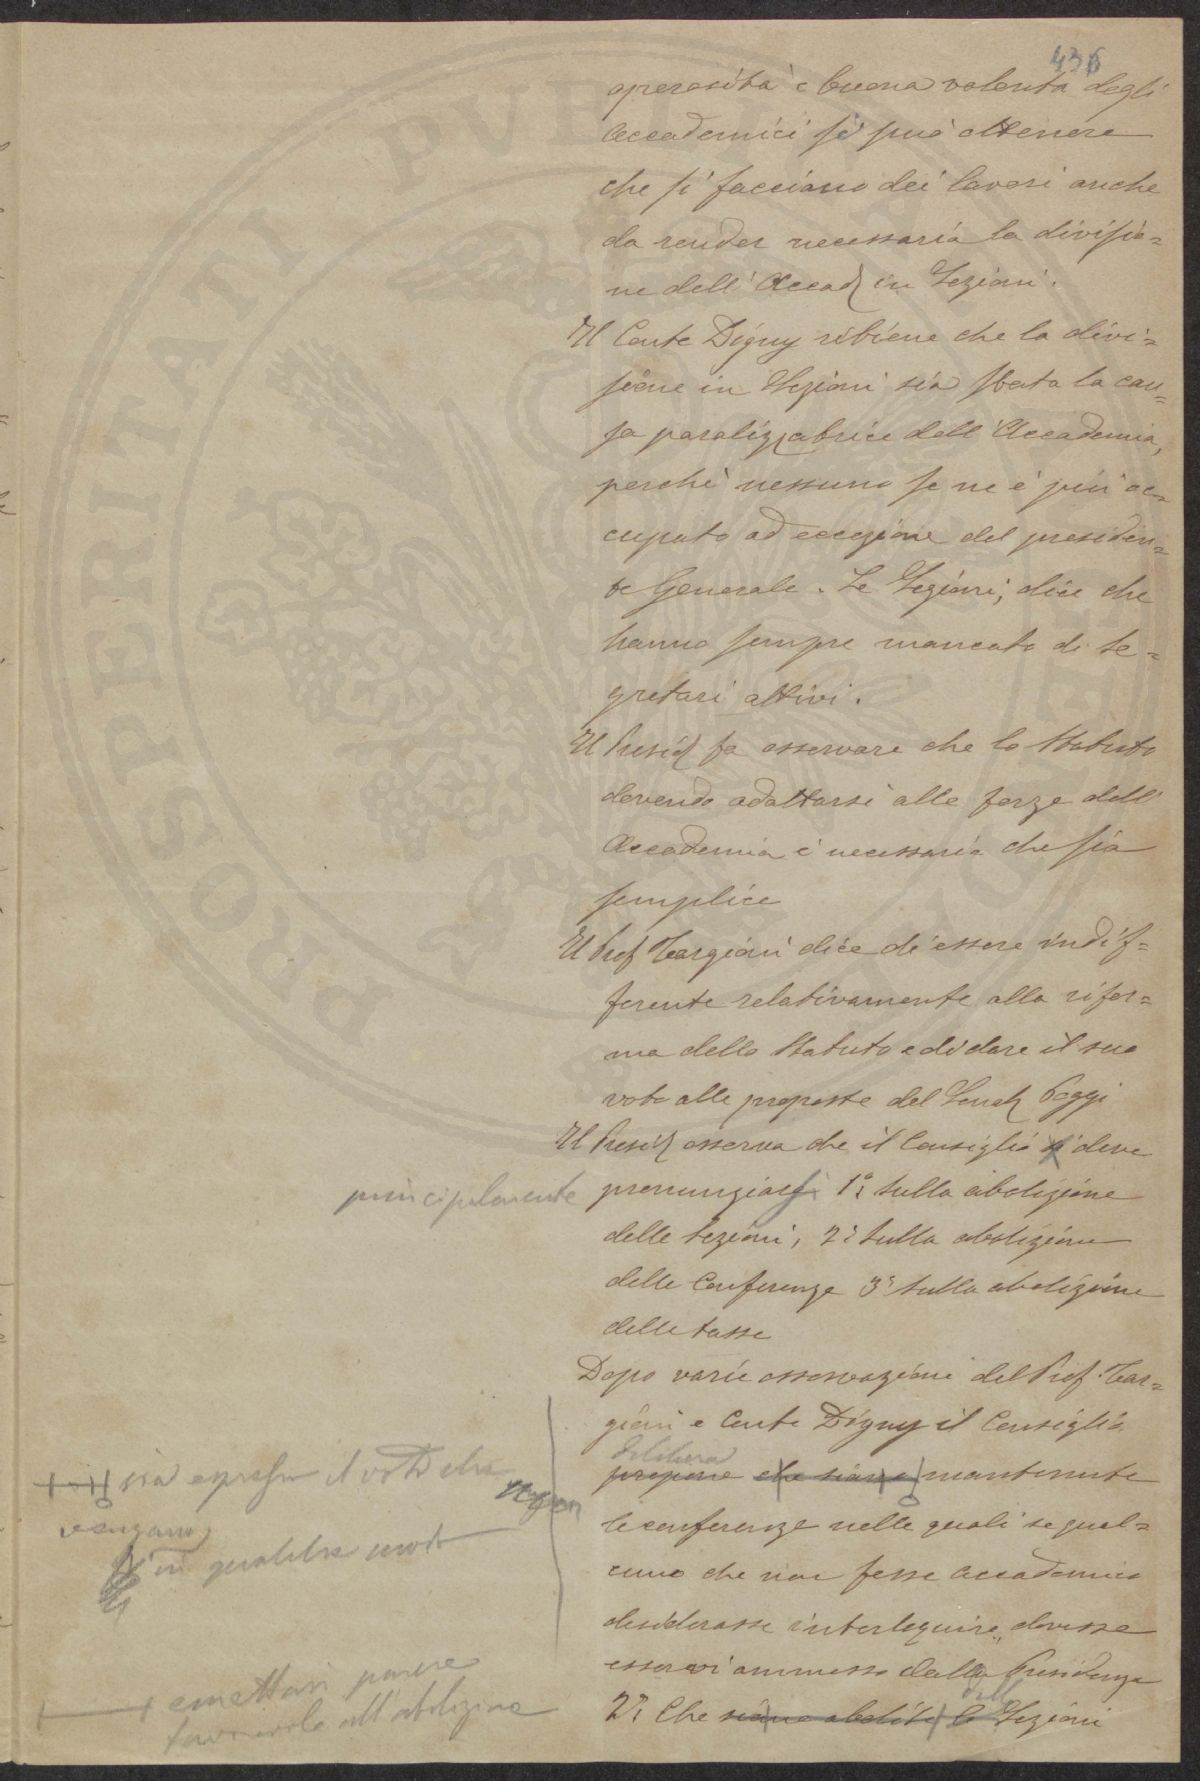 436
operosità e buona volontà degli
Accademici si può ottenere
che si facciano dei lavori anche
da render necessaria la divisio=
ne dell'Accad in Sezioni.
Il Conte Digny ritiene che la divi=
sione in Sezioni sia stata la cau=
sa paralizzatrice dell'Accademia,
perchè nessuno se ne è più oc=
cupato ad eccezione del presiden=
te Generale. Le Sezioni, dice che
hanno sempre mancato di Se=
gretari attivi.
Il Presid fa osservare che lo Statuto
dovendo adattarsi alle forze dell'
Accademia è necessario che sia
semplice
Il Prof Targioni dice di essere indif=
ferente relativamente alla rifor=
ma dello Statuto e di dare il suo
voto alle proposte del Senat Poggi
Il Presid osserva che il Consiglio si deve
principalmente pronunziarsi 1° sulla abolizione
delle Sezioni, 2° sulla abolizione
delle Conferenze 3° sulla abolizione
delle tasse
Dopo varie osservazioni del Prof. Tar=
gioni e Conte Digny il Consiglio
delibera
propone che siano mantenute
le conferenze nelle quali se qual=
cuno che non fosse accademico
desiderasse interloquire, dovesse
esservi ammesso dalla Presidenza
2° Che siano abolite le Sezioni
delle
sia espresso il voto che
vengano
in qualche modo
emettersi parere
favorevole all'abolizione
PROSPERITATI PVBLICAE